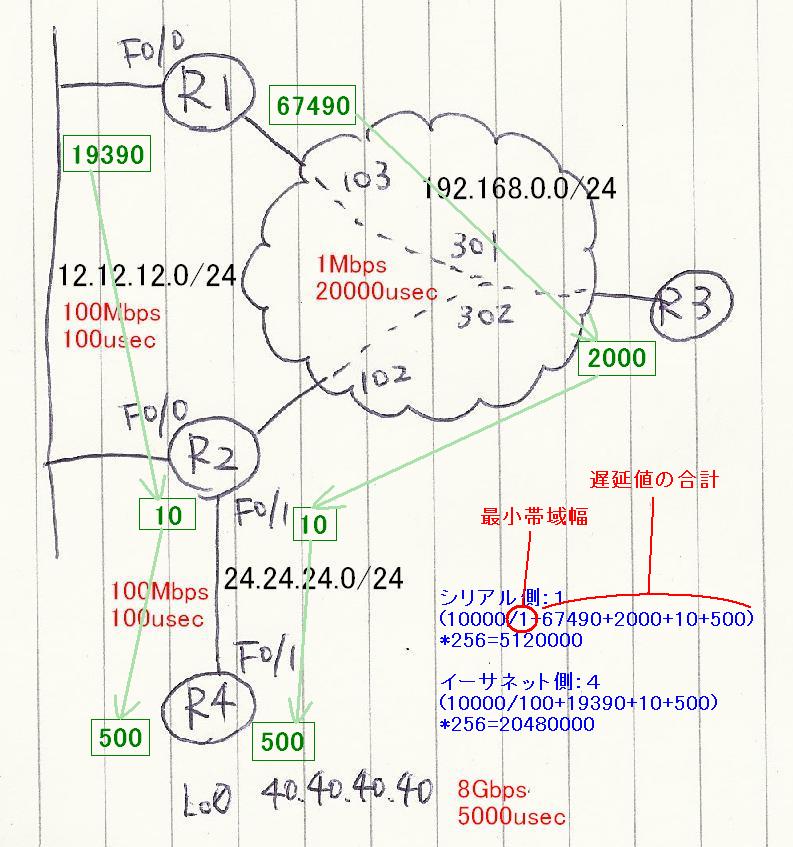 F0/0
R1
67490
19390
103
192.168.0.0/24
301
12.12.12.0/24
1Mbps
20000usec
100Mbps
100usec
302
R3
2000
102
F0/0
R2
10
F0/1
10
遅延値の合計
最小帯域幅
100Mbps
100usec
24.24.24.0/24
シリアル側:1
(10000/1+67490+2000+10+500)
*256=5120000
F0/1
イーサネット側:4
(10000/100+19390+10+500)
*256=20480000
R4
500
500
Lo0 40.40.40.40
8Gbps
5000usec